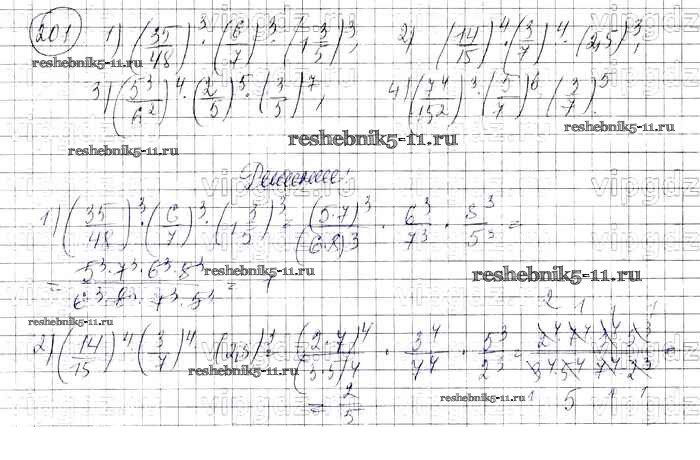 201 1) (35/48)³ · (6/7)³ · (1 3/5)³; 2) (14/15)⁴ · (3/7)⁴ · (2,5)³;
reshebnik5-11.ru
3) (5³/6²)⁴ · (2/5)⁵ · (3/5)⁷; 4) (7⁴/152)³ · (5/7)⁶ · (3/7)⁵
reshebnik5-11.ru reshebnik5-11.ru reshebnik5-11.ru
Решение:
1) (35/48)³ · (6/7)³ · (1 3/5)³ = (5·7)³/(6·8)³ · 6³/7³ · 8³/5³ =
= 5³·7³·6³·8³/6³·8³·7³·5³ = 1
reshebnik5-11.ru reshebnik5-11.ru
reshebnik5-11.ru
2) (14/15)⁴ · (3/7)⁴ · (2,5)³ = (2·7)⁴/(3·5)⁴ · 3⁴/7⁴ · 5³/2³ = 2⁴·7⁴·3⁴·5³/3⁴·5⁴·7⁴·2³ =
reshebnik5-11.ru
= 2/5
reshebnik5-11.ru
vipgdz